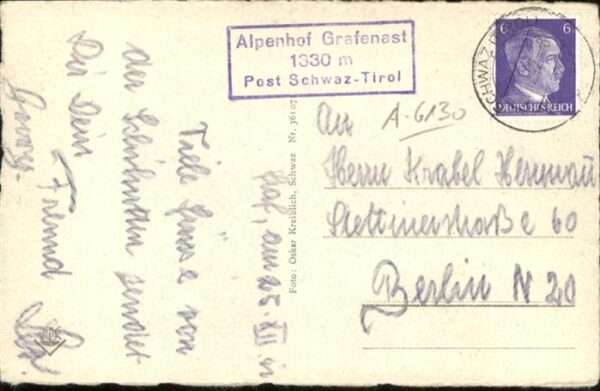 Alpenhof Grafenast
1330 m
Post Schwaz-Tirol
SCHWAZ
6 6
DEUTSCHES REICH
A-6130
An
Herrn Krabel Hermann
Stettinerstraße 60
Berlin N 20
Foto: Oskar Kreiblich, Schwaz Nr.
am 25. XII
Viele Grüsse von
der sendet
Dir Dein
Freund